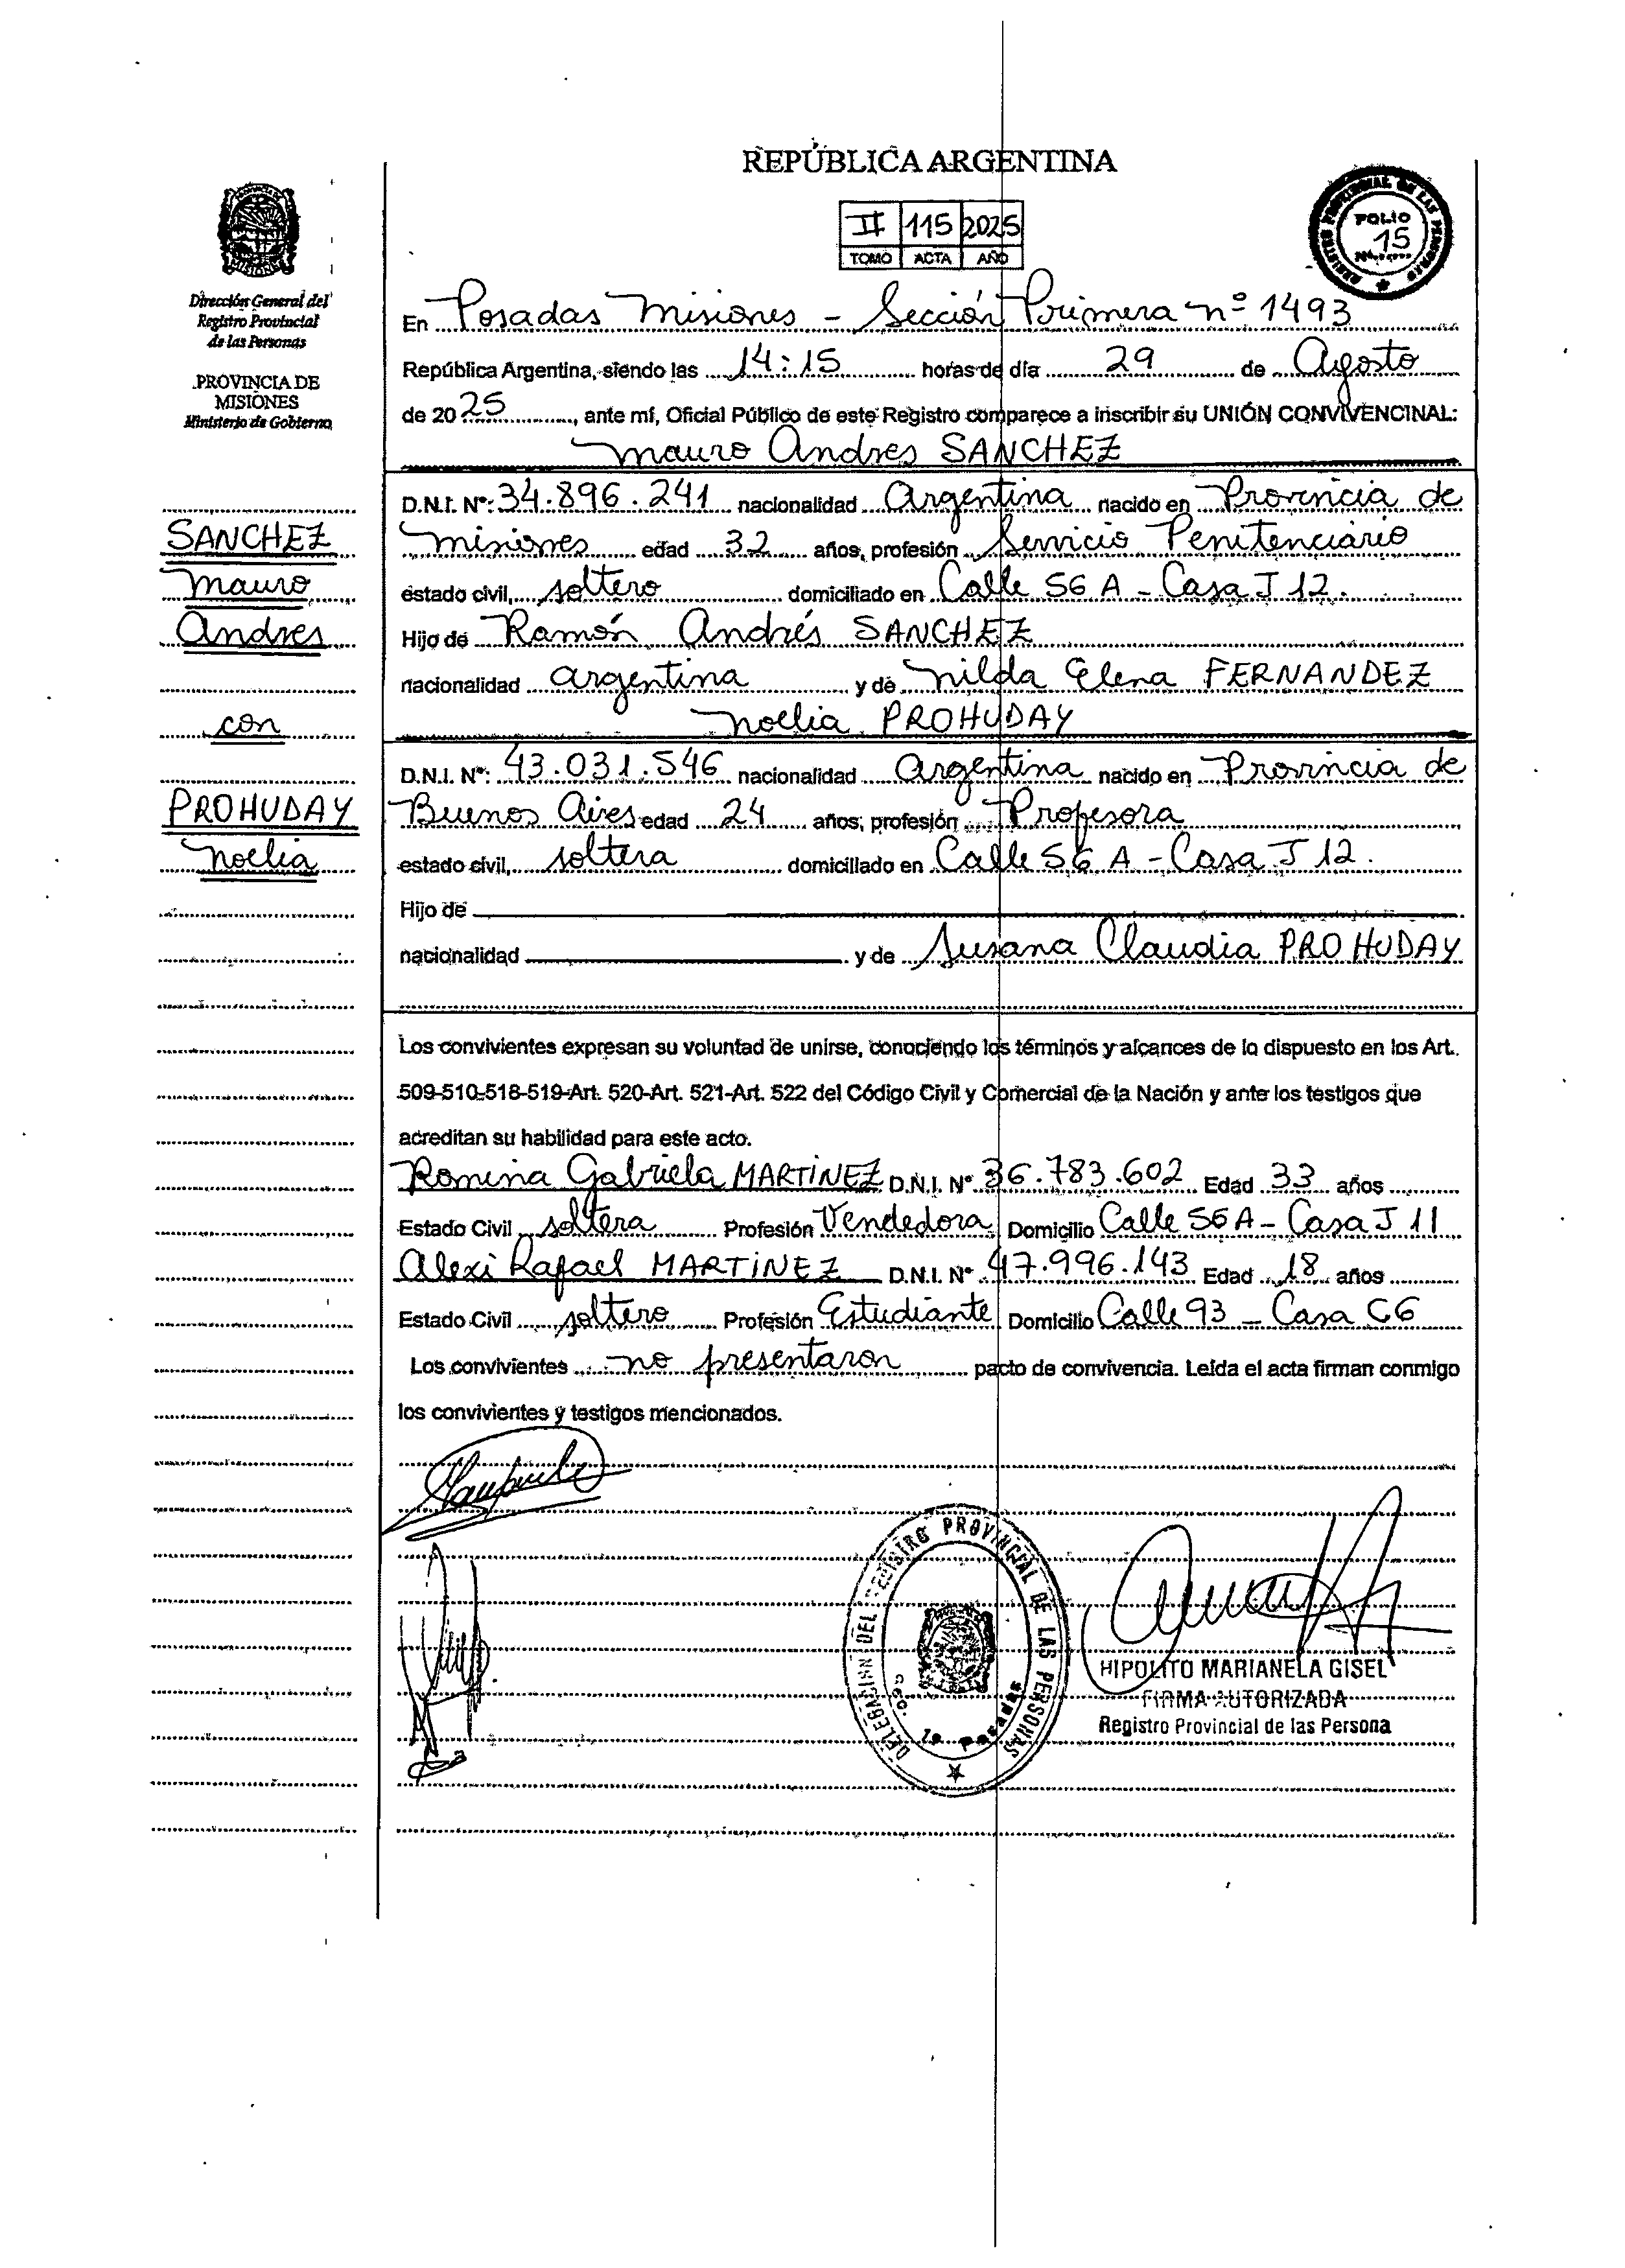 REPÚBLICA ARGENTINA
II 115 2025
TOMO ACTA AÑO
FOLIO
15
Dirección General del
Registro Provincial
de las Personas
PROVINCIA DE
MISIONES
Ministerio de Gobierno
En Posadas Misiones - Sección Primera nº 1493
República Argentina, siendo las 14:15 horas de día 29 de Agosto
de 2025, ante mí, Oficial Público de este Registro comparece a inscribir su UNIÓN CONVIVENCINAL:
Mauro Andres SANCHEZ
SANCHEZ
Mauro
Andres
con
PROHUDAY
Noelia
D.N.I. Nº: 34.896.241 nacionalidad Argentina nacido en Provincia de
Misiones edad 32 años, profesión Servicio Penitenciario
estado civil, soltero domiciliado en Calle 56 A - Casa J 12.
Hijo de Ramón Andrés SANCHEZ
nacionalidad argentina y de Nilda Elena FERNANDEZ
Noelia PROHUDAY
D.N.I. Nº: 43.031.546 nacionalidad Argentina nacido en Provincia de
Buenos Aires edad 24 años, profesión Profesora
estado civil, soltera domiciliado en Calle 56 A - Casa J 12.
Hijo de
nacionalidad y de Susana Claudia PROHUDAY
Los convivientes expresan su voluntad de unirse, conociendo los términos y alcances de lo dispuesto en los Art.
509-510-518-519-Art. 520-Art. 521-Art. 522 del Código Civil y Comercial de la Nación y ante los testigos que
acreditan su habilidad para este acto.
Romina Gabriela MARTINEZ D.N.I. Nº 36.783.602 Edad 33 años
Estado Civil soltera Profesión Vendedora Domicilio Calle 56 A - Casa J 11
Alexi Rafael MARTINEZ D.N.I. Nº 47.996.143 Edad 18 años
Estado Civil soltero Profesión Estudiante Domicilio Calle 93 - Casa C6
Los convivientes no presentaron pacto de convivencia. Leída el acta firman conmigo
los convivientes y testigos mencionados.
DELEGACION DEL REGISTRO PROVINCIAL DE LAS PERSONAS
Sec. 1a Posadas
HIPOLITO MARIANELA GISEL
FIRMA AUTORIZADA
Registro Provincial de las Persona